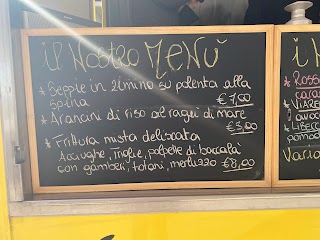 il Nostro MENÙ
* Seppie in zimino su polenta alla
spina €7,00
* Arancini di riso al ragù di mare
€3,00
* Frittura mista deliscata
Acciughe, Triglie, polpette di baccalà
con gamberi, totani, merluzzo €8,00
i N
* Rosso
cara
* VIARE
avoca
* LIBECC
pomod
Varia